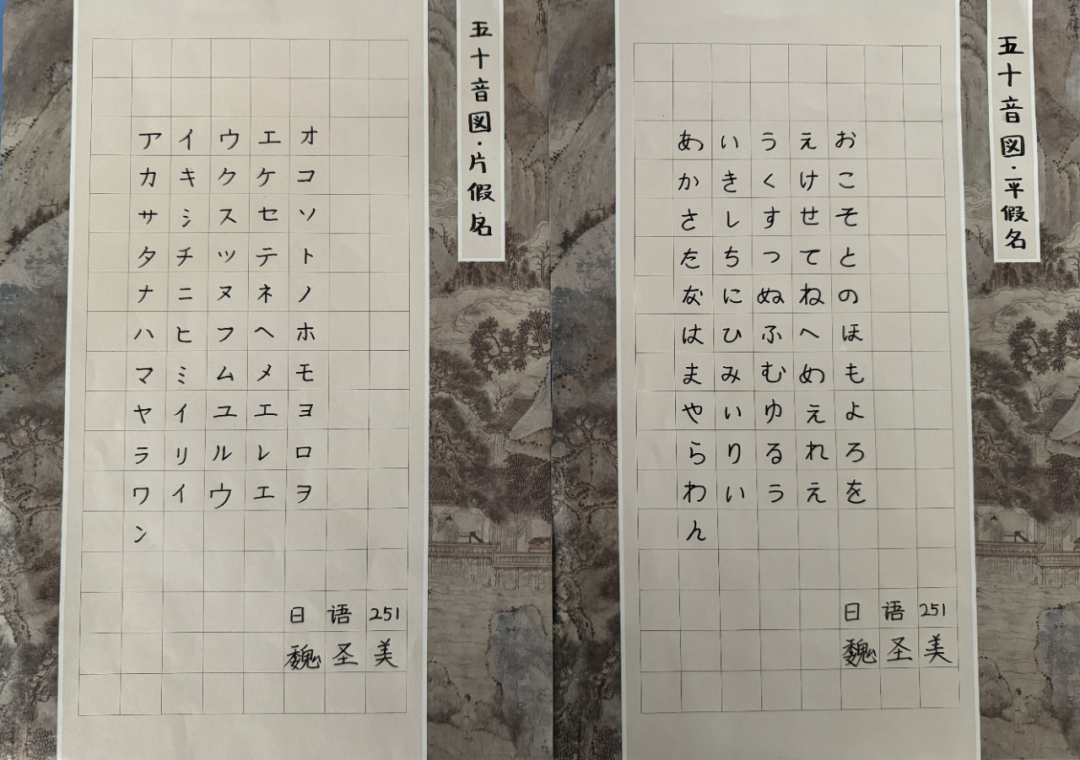 五十音図·片假名
アイウエオ
カキクケコ
サシスセソ
タチツテト
ナニヌネノ
ハヒフヘホ
マミムメモ
ヤイユエヨ
ラリルレロ
ワイウエヲ
ン
日语251
魏圣美
五十音図·平假名
あいうえお
かきくけこ
さしすせそ
たちつてと
なにぬねの
はひふへほ
まみむめも
やいゆえよ
らりるれろ
わいうえを
ん
日语251
魏圣美